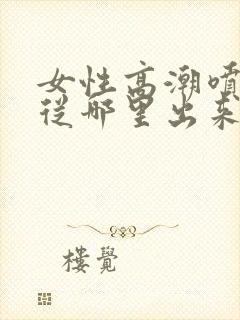 女性高潮噴
從哪里出來
樓覺